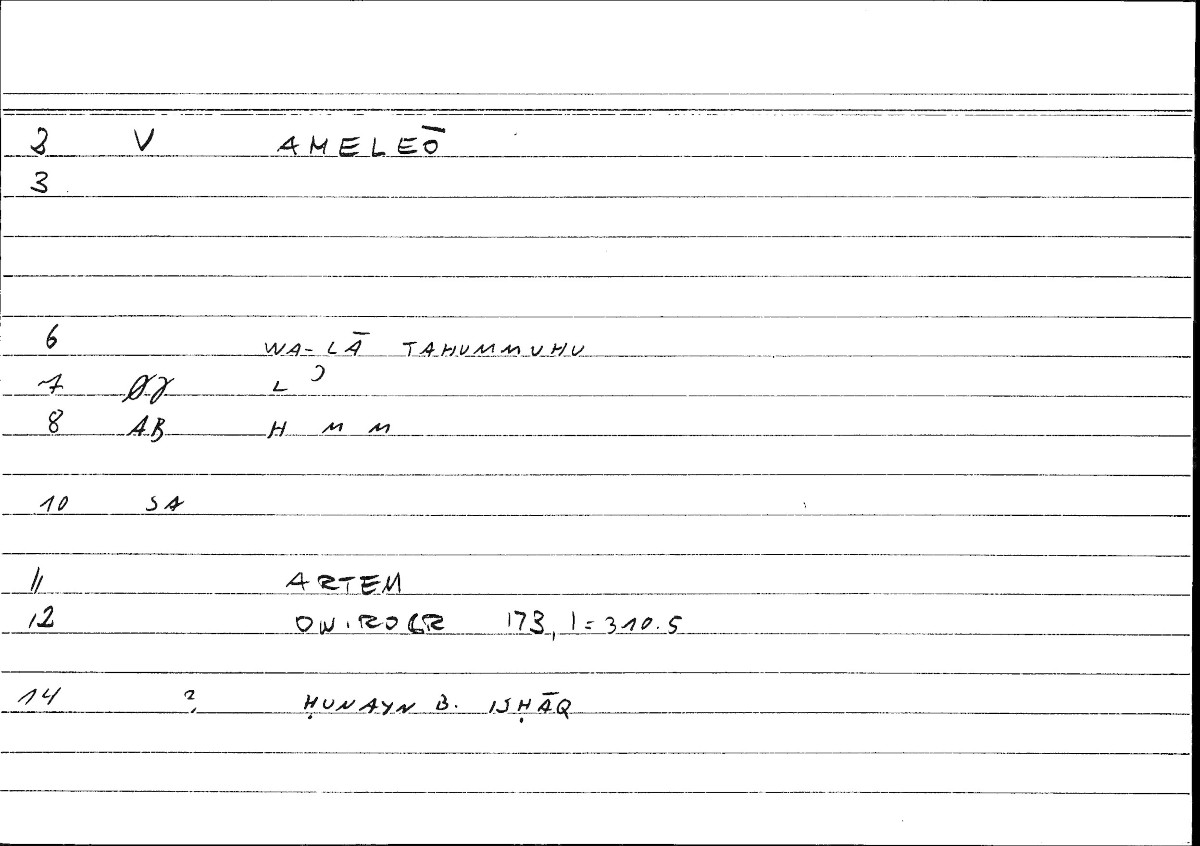 3 V AMELEŌ
3
6 WA-LĀ TAHUMMUHU
7 L ʾ
8 AB H M M
10 SA
11 ARTEM
12 ONIROCR 173,1=310.5
14 ? ḤUNAYN B. ISḤĀQ